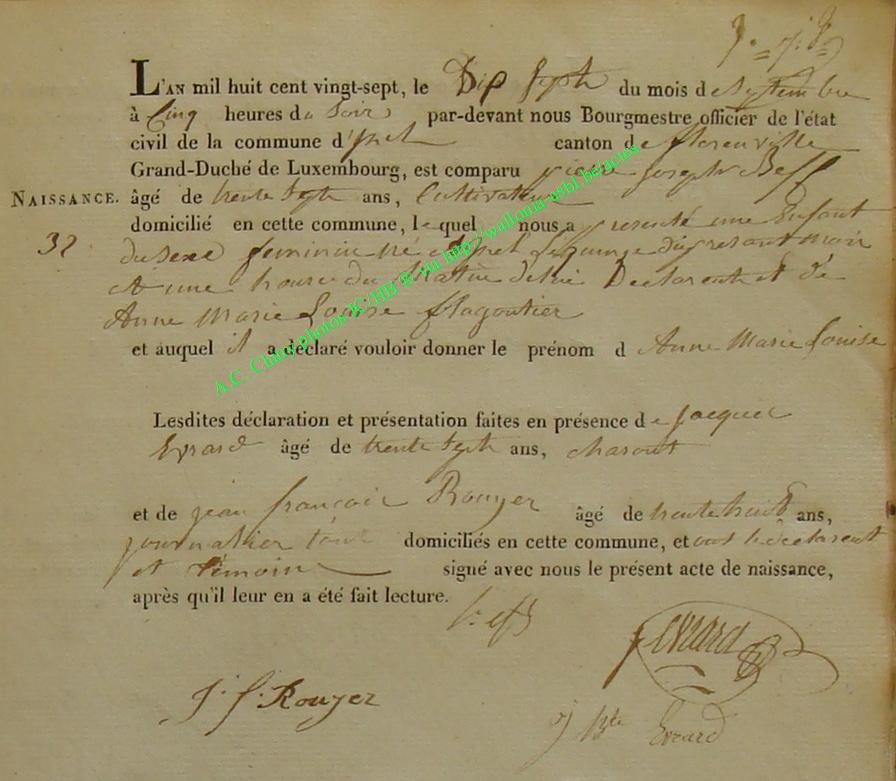 L'AN mil huit cent vingt-sept, le Dix Septe du mois de Septembre
à Cinq heures du Soir par-devant nous Bourgmestre officier de l'état
civil de la commune d'Ysel canton de florenville
Grand-Duché de Luxembourg, est comparu pierre joseph
NAISSANCE. âgé de trente Septe ans, Cultivateur
domicilié en cette commune, lequel nous a presenté une Enfant
32
du Sexe feminin né a Ysel Le quinze du presant mois
A une heure du Matin de lui Declarent et de
Anne Marie Louise flagoutier
et auquel il a déclaré vouloir donner le prénom d Anne Marie Louise
Lesdites déclaration et présentation faites en présence de Jacques
Evrard âgé de trente Septe ans, charont
et de jean françois Rouyer âgé de trente huit ans,
journalier tous domiciliés en cette commune, et ont le declarent
et Témoins signé avec nous le présent acte de naissance,
après qu'il leur en a été fait lecture.
j evrard
J. f. Rouyer
j Bte Evrard
A.C. Chiny photos IC/HB © via http://wallonia-asbl.be/actes